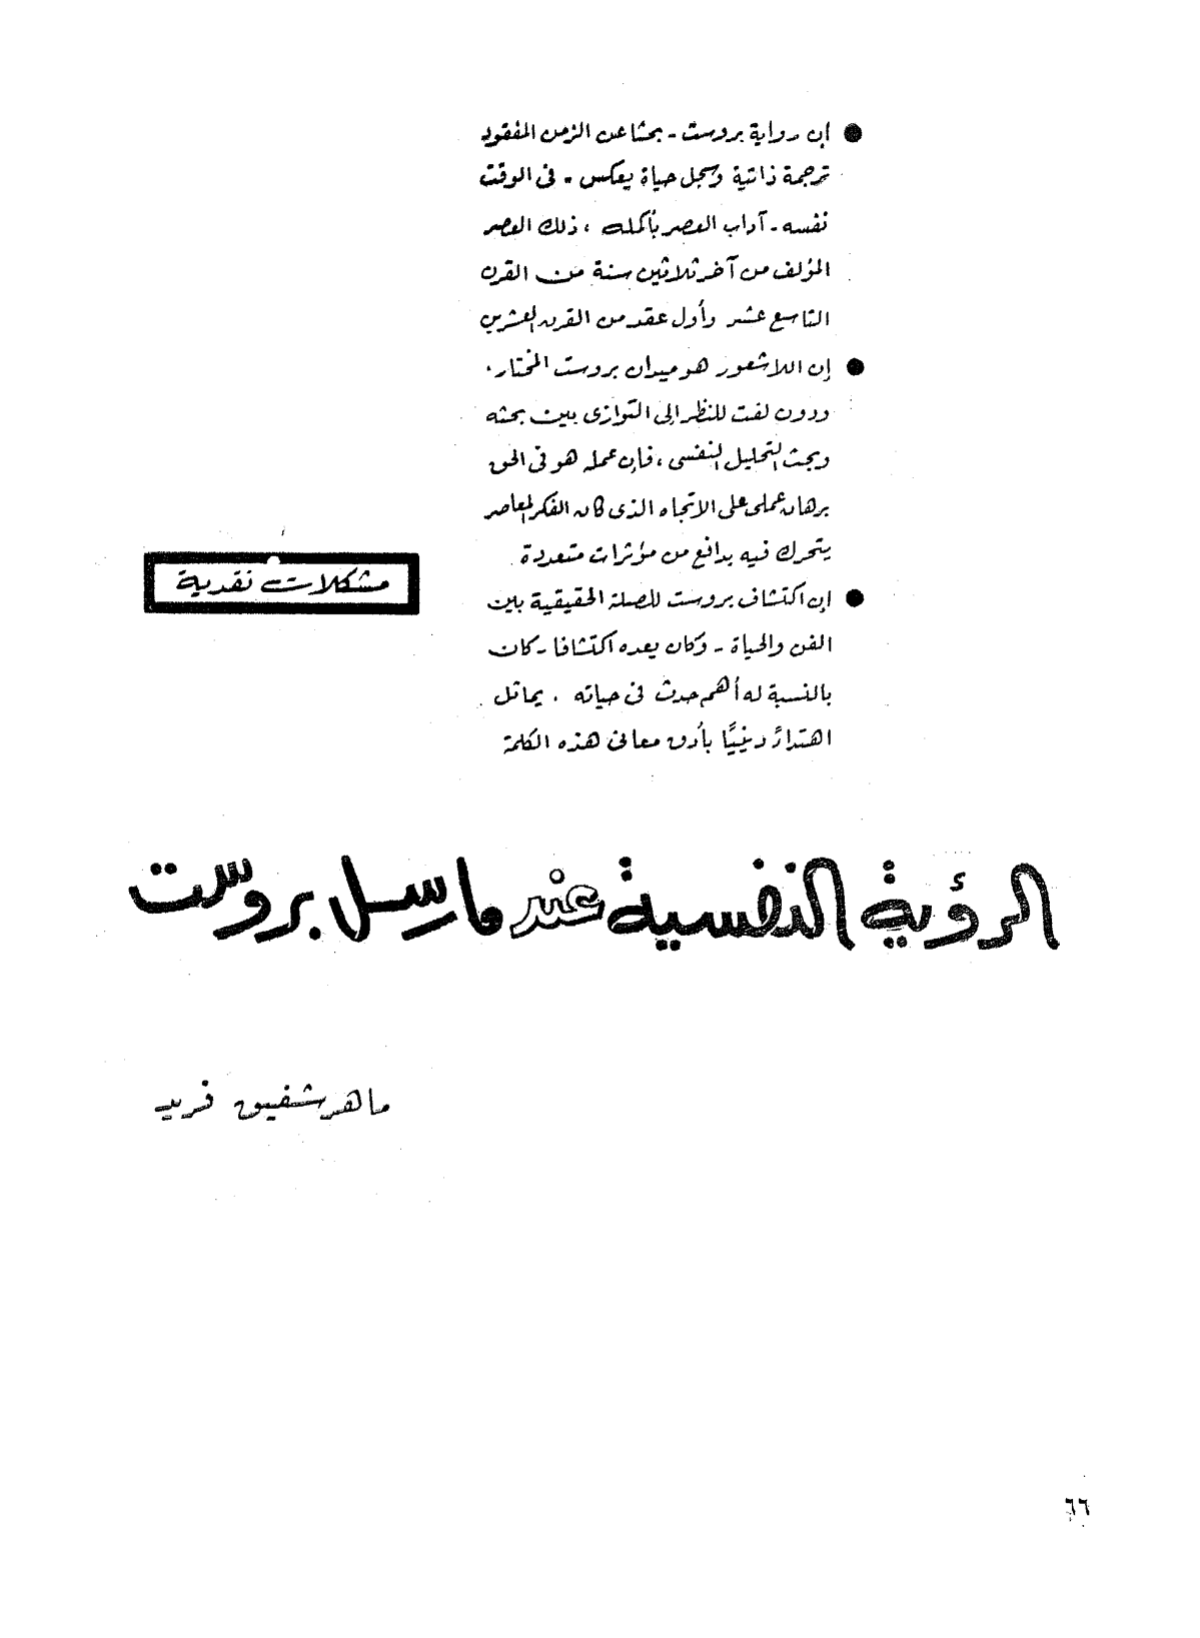 ● إن رواية بروست - بحثا عن الزمن المفقود
ترجمة ذاتية وسجل حياة يعكس - فى الوقت
نفسه - آداب العصر بأكمله ، ذلك العصر
المؤلف من آخر ثلاثين سنة من القرن
التاسع عشر وأول عقد من القرن العشرين
● إن اللاشعور هو ميدان بروست المختار .
ودون لفت للنظر إلى التوازى بين بحثه
وبحث التحليل النفسى ، فإن عمله هو فى الحق
برهان عملى على الاتجاه الذى كان الفكر المعاصر
يتحرك فيه بدافع من مؤثرات متعددة .
● إن اكتشاف بروست للصلة الحقيقية بين
الفن والحياة - وكان يعده اكتشافا - كان
بالنسبة له أهم حدث فى حياته . يماثل
اهتداءً دينيًا بأدق معانى هذه الكلمة
مشكلات نقدية
الرؤية النفسية عند مارسل بروست
ماهر شفيق فريد
٦٦